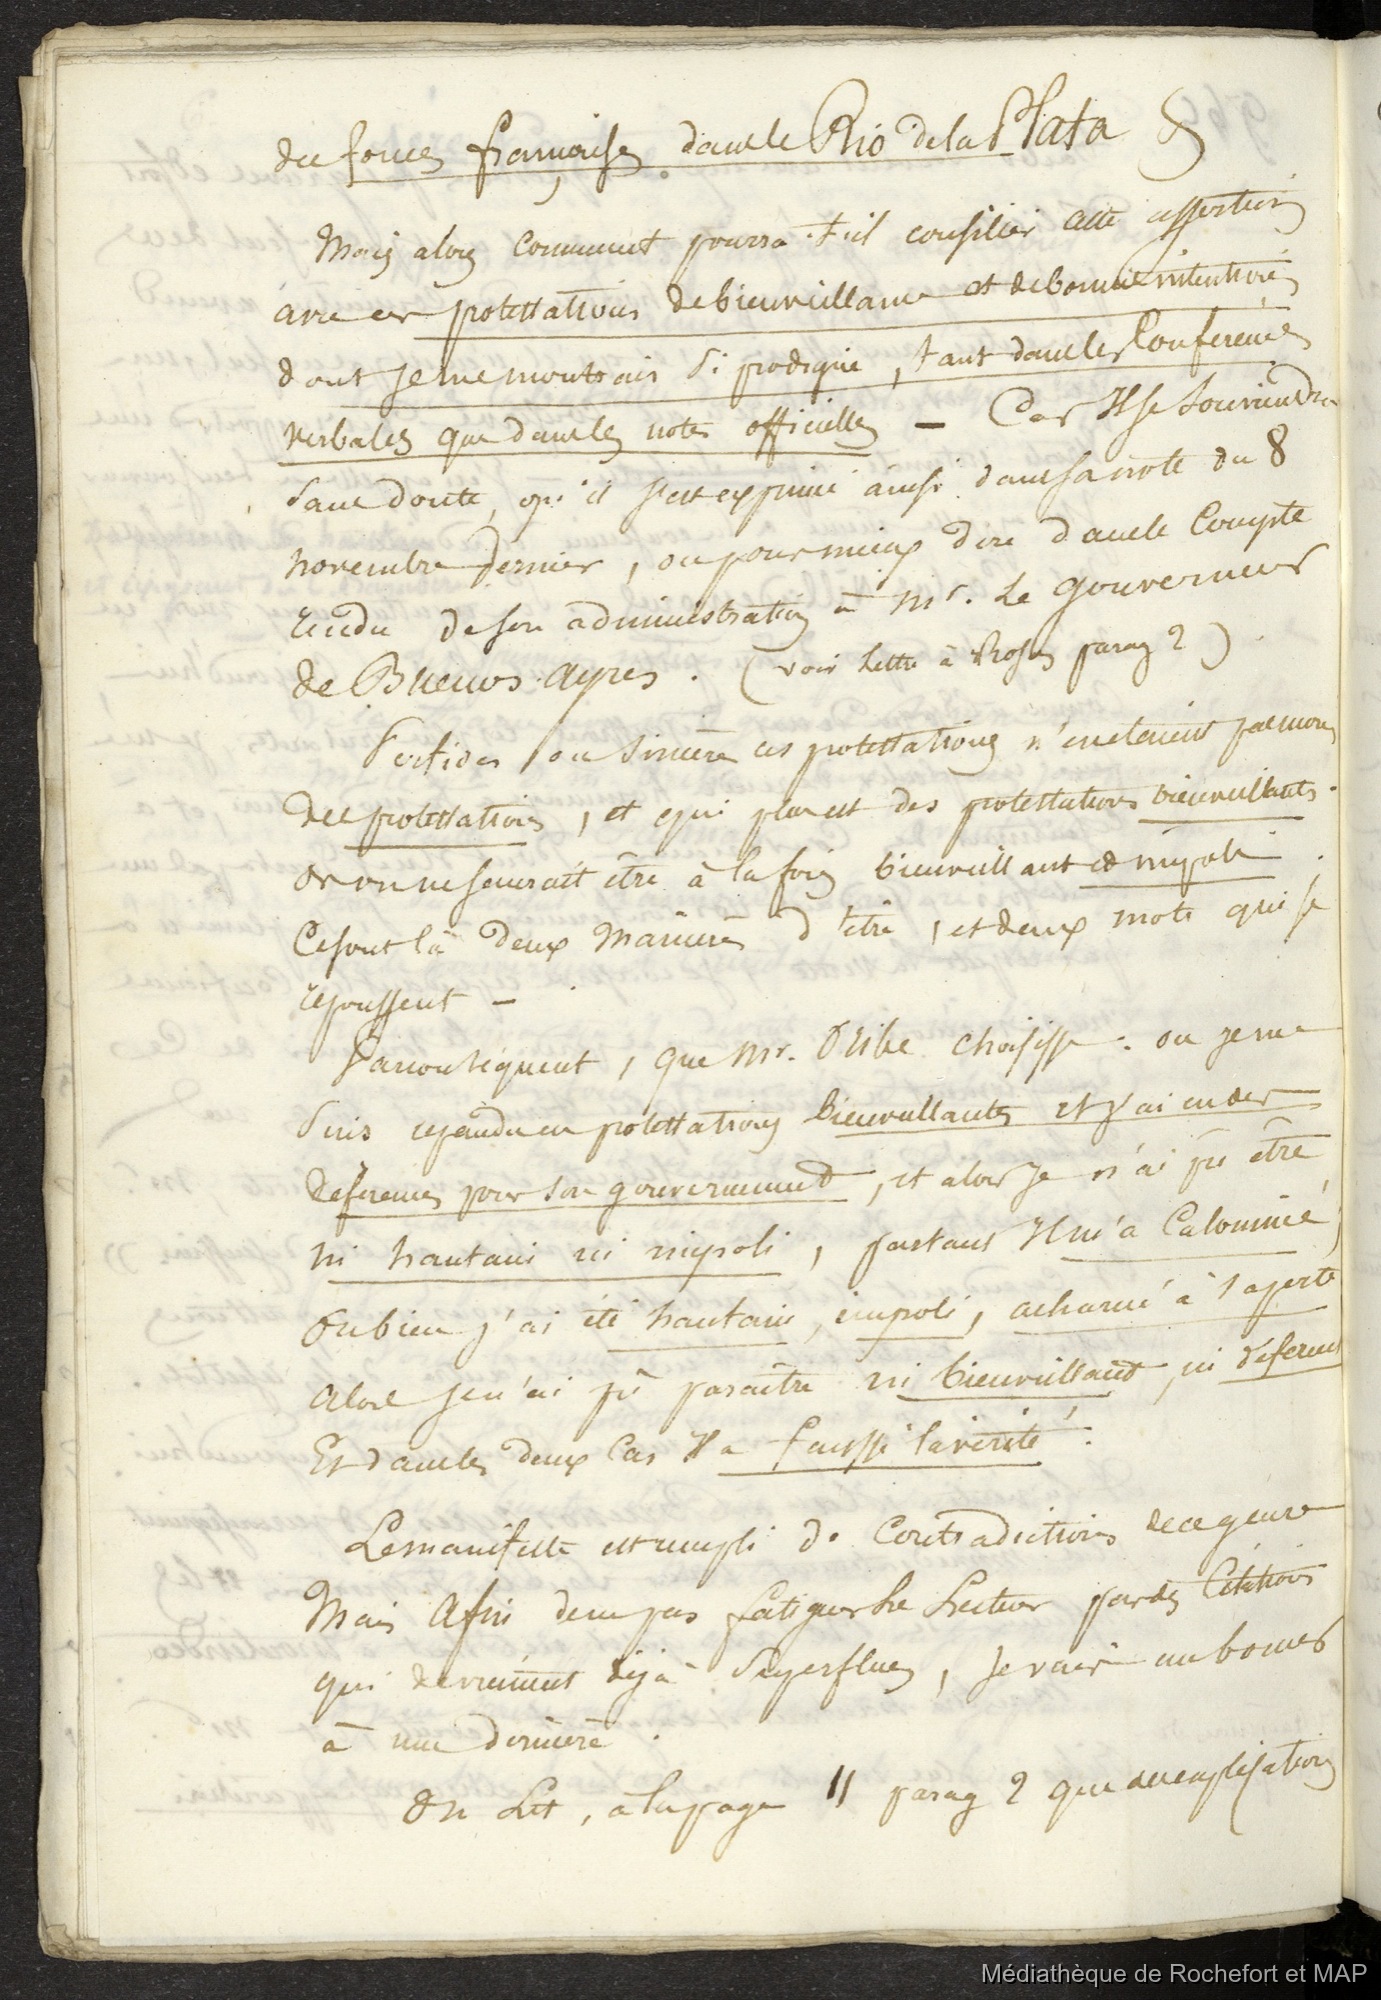 des forces françaises dans le Rio de la Plata
Mais alors comment pourra-t-il consilier cette assertion
avec ces protestations de bienveillance et de bonnes intentions
dont je me montrais si prodigue, tant dans les Conferences
verbales que dans les notes officielles — Car Il se souviendra
sans doute, qu'il s'est exprimé ainsi dans sa note du 8
novembre dernier, ou pour mieux dire dans le Compte
rendu de son administration à Mr. Le gouverneur
de Buenos-ayres. (voir Lettre à Rosas parag 2)
Perfides ou sincères ces protestations n'en etaient pas moins
des protestations, et qui plus est des protestations bienveillantes.
or on ne saurait être à la fois bienveillant et impoli.
Ce sont là deux manières d'être, et deux mots qui se
repoussent —
Par conséquent, que Mr. Oribe choisisse: ou je me
suis repandu en protestations bienveillantes et j'ai eu des
déferences pour son gouvernement, et alors je n'ai pû être
ni hautain ni impoli, partant Il m'a Calomnié,
Ou bien j'ai été hautain, impoli, acharné à sa perte
alors je n'ai pû paraître ni bienveillant, ni déferent
Et dans les deux Cas Il a faussé la vérité.
Le manifeste est rempli de Contradictions de ce genre
Mais afin de ne pas fatiguer Le Lecteur par des Citations
qui deviennent déjà superflues, je vais me borner
à une dernière.
On Lit, à la page 11 parag 2 que des explications
Médiathèque de Rochefort et MAP